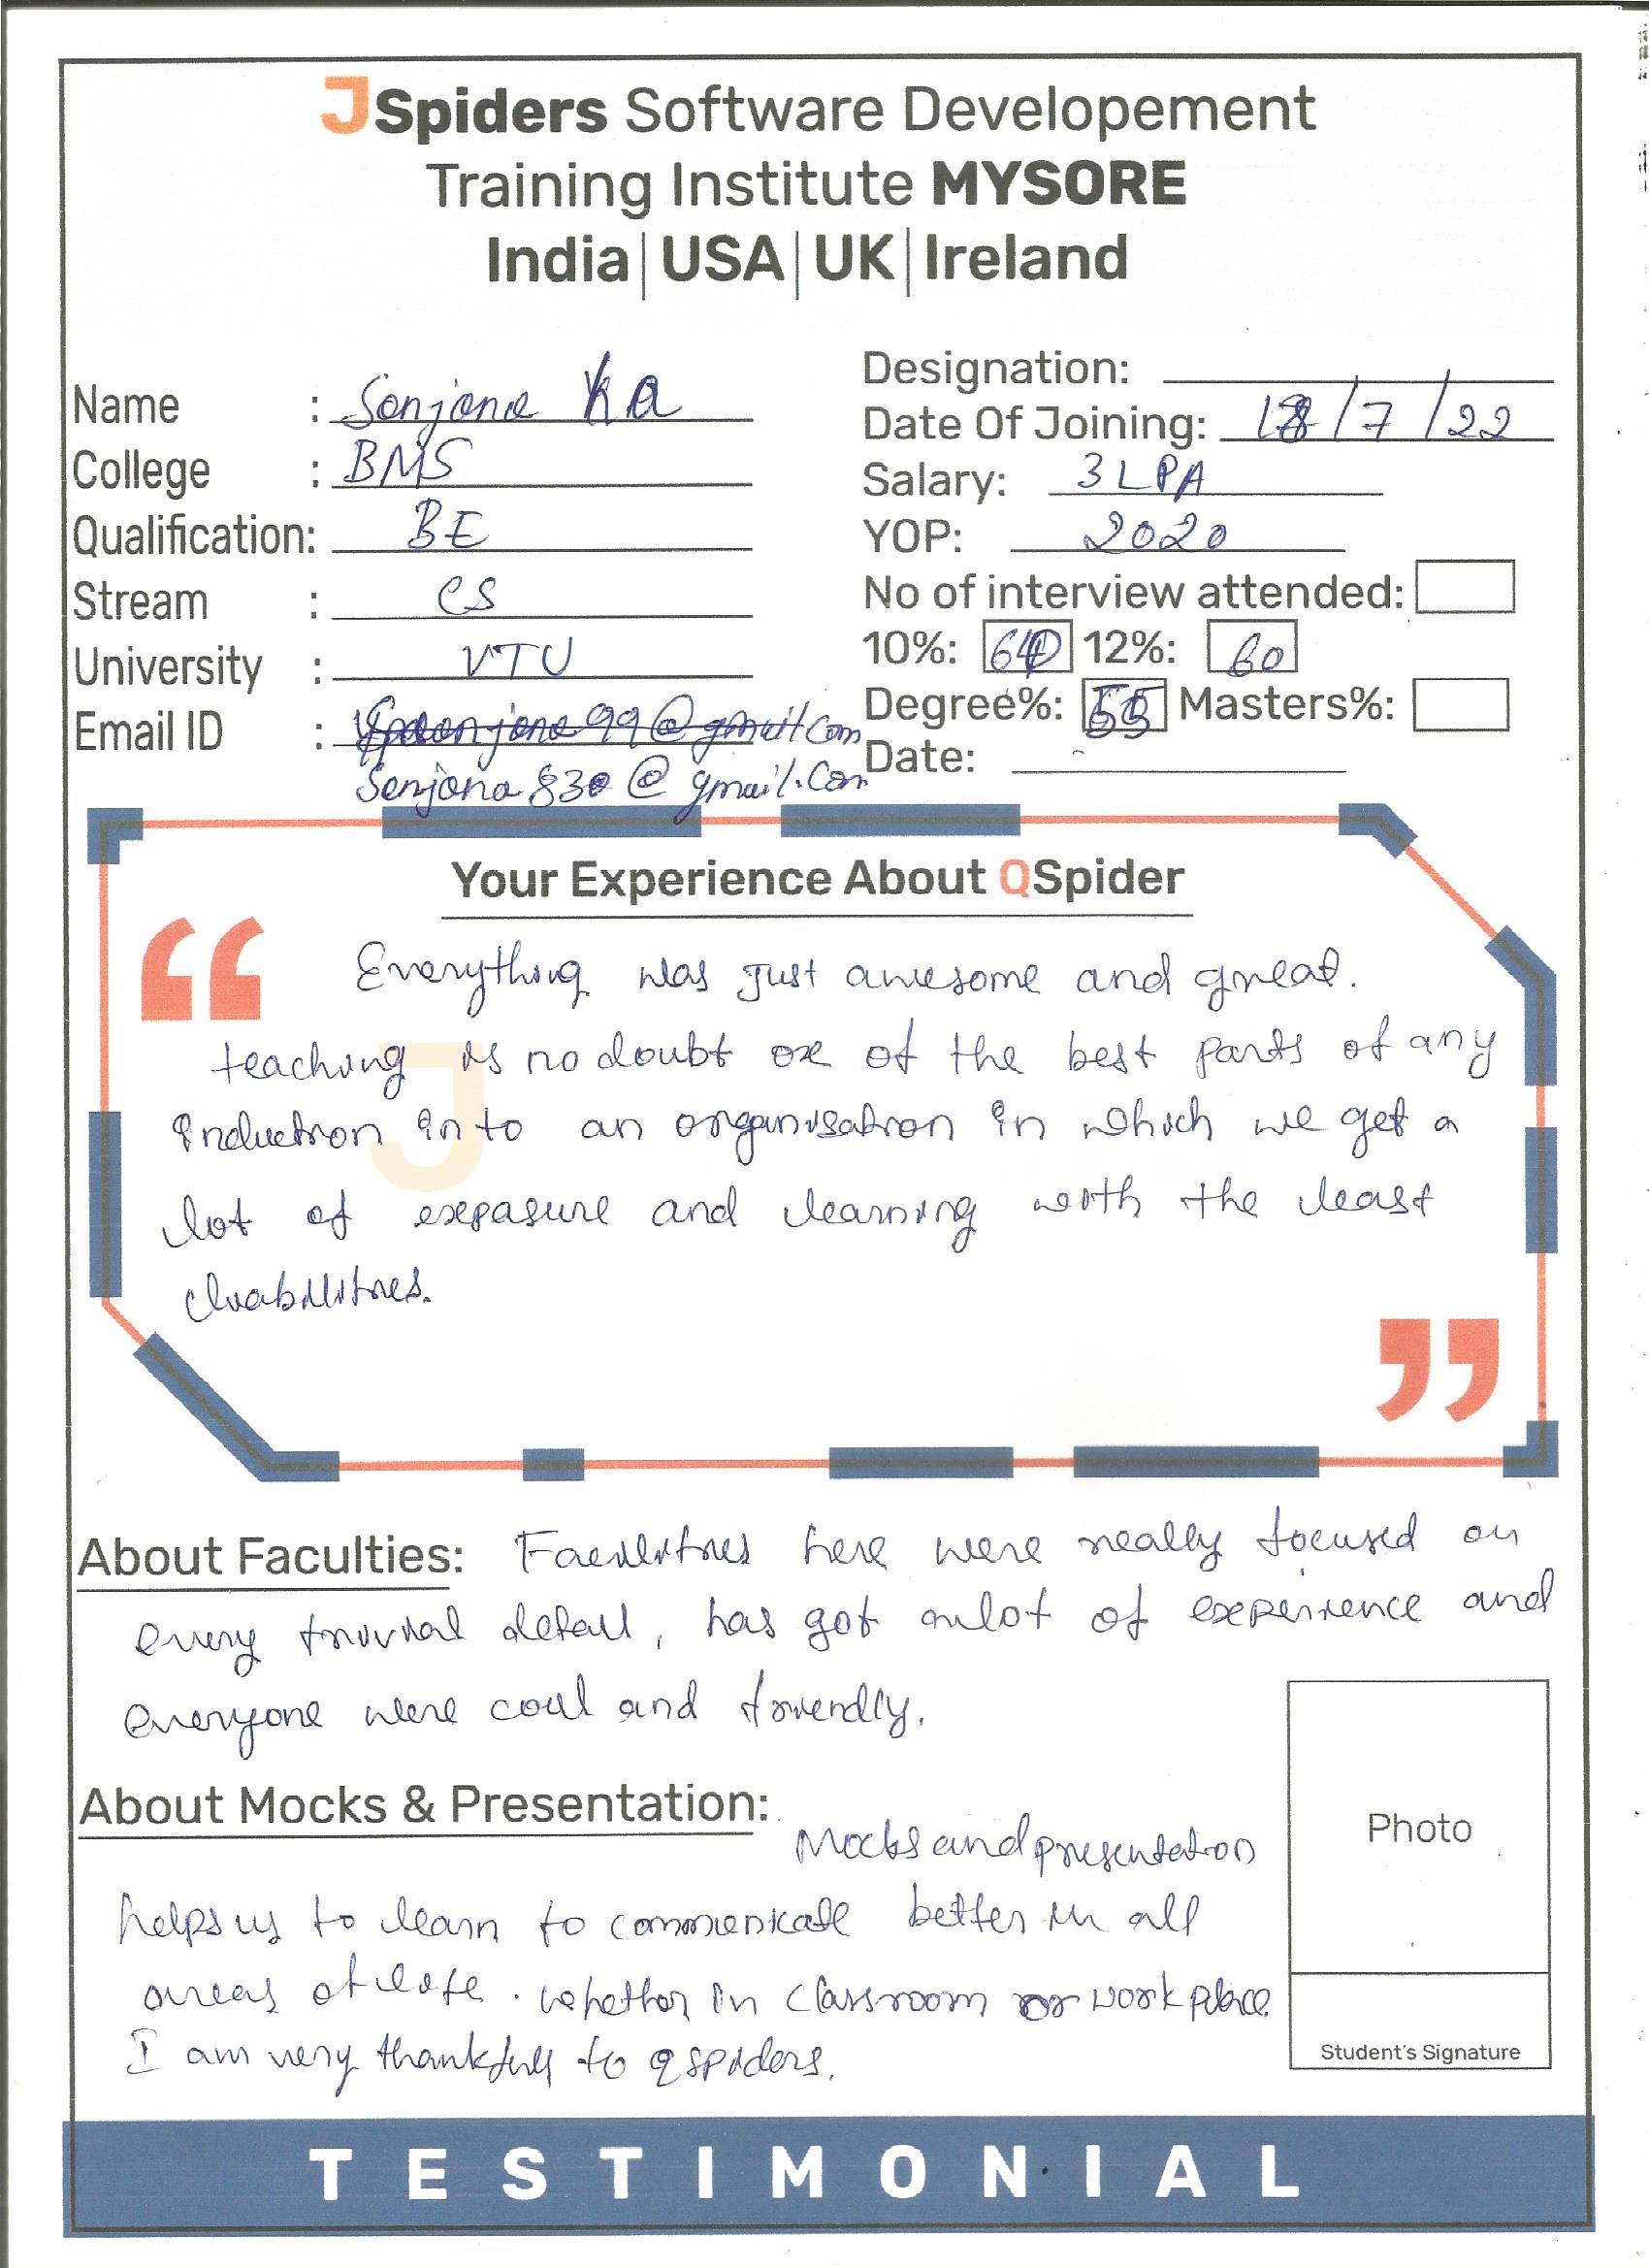 JSpiders Software Developement
Training Institute MYSORE
India | USA | UK | Ireland
Name : Sonjana K a
College : BMS
Qualification: BE
Stream : CS
University : VTU
Email ID :
Sonjana830@gmail.Com
Designation:
Date Of Joining: 18/7/22
Salary: 3 LPA
YOP: 2020
No of interview attended:
10%: 12%: 60
Degree%: 55 Masters%:
Date:
Your Experience About QSpider
Everything was just awesome and great.
teaching is no doubt one of the best parts of any
induction in to an organisation in which we get a
lot of exposure and learning with the least
liabilities.
About Faculties: Facilities here were really focused on
every trivial detail, has got alot of experience and
everyone were cool and friendly.
About Mocks & Presentation:
Mocks and presentation
helps us to learn to commenicate better in all
areas of life. whether in classroom or work place.
I am very thankfull to qspiders.
Photo
Student's Signature
TESTIMONIAL